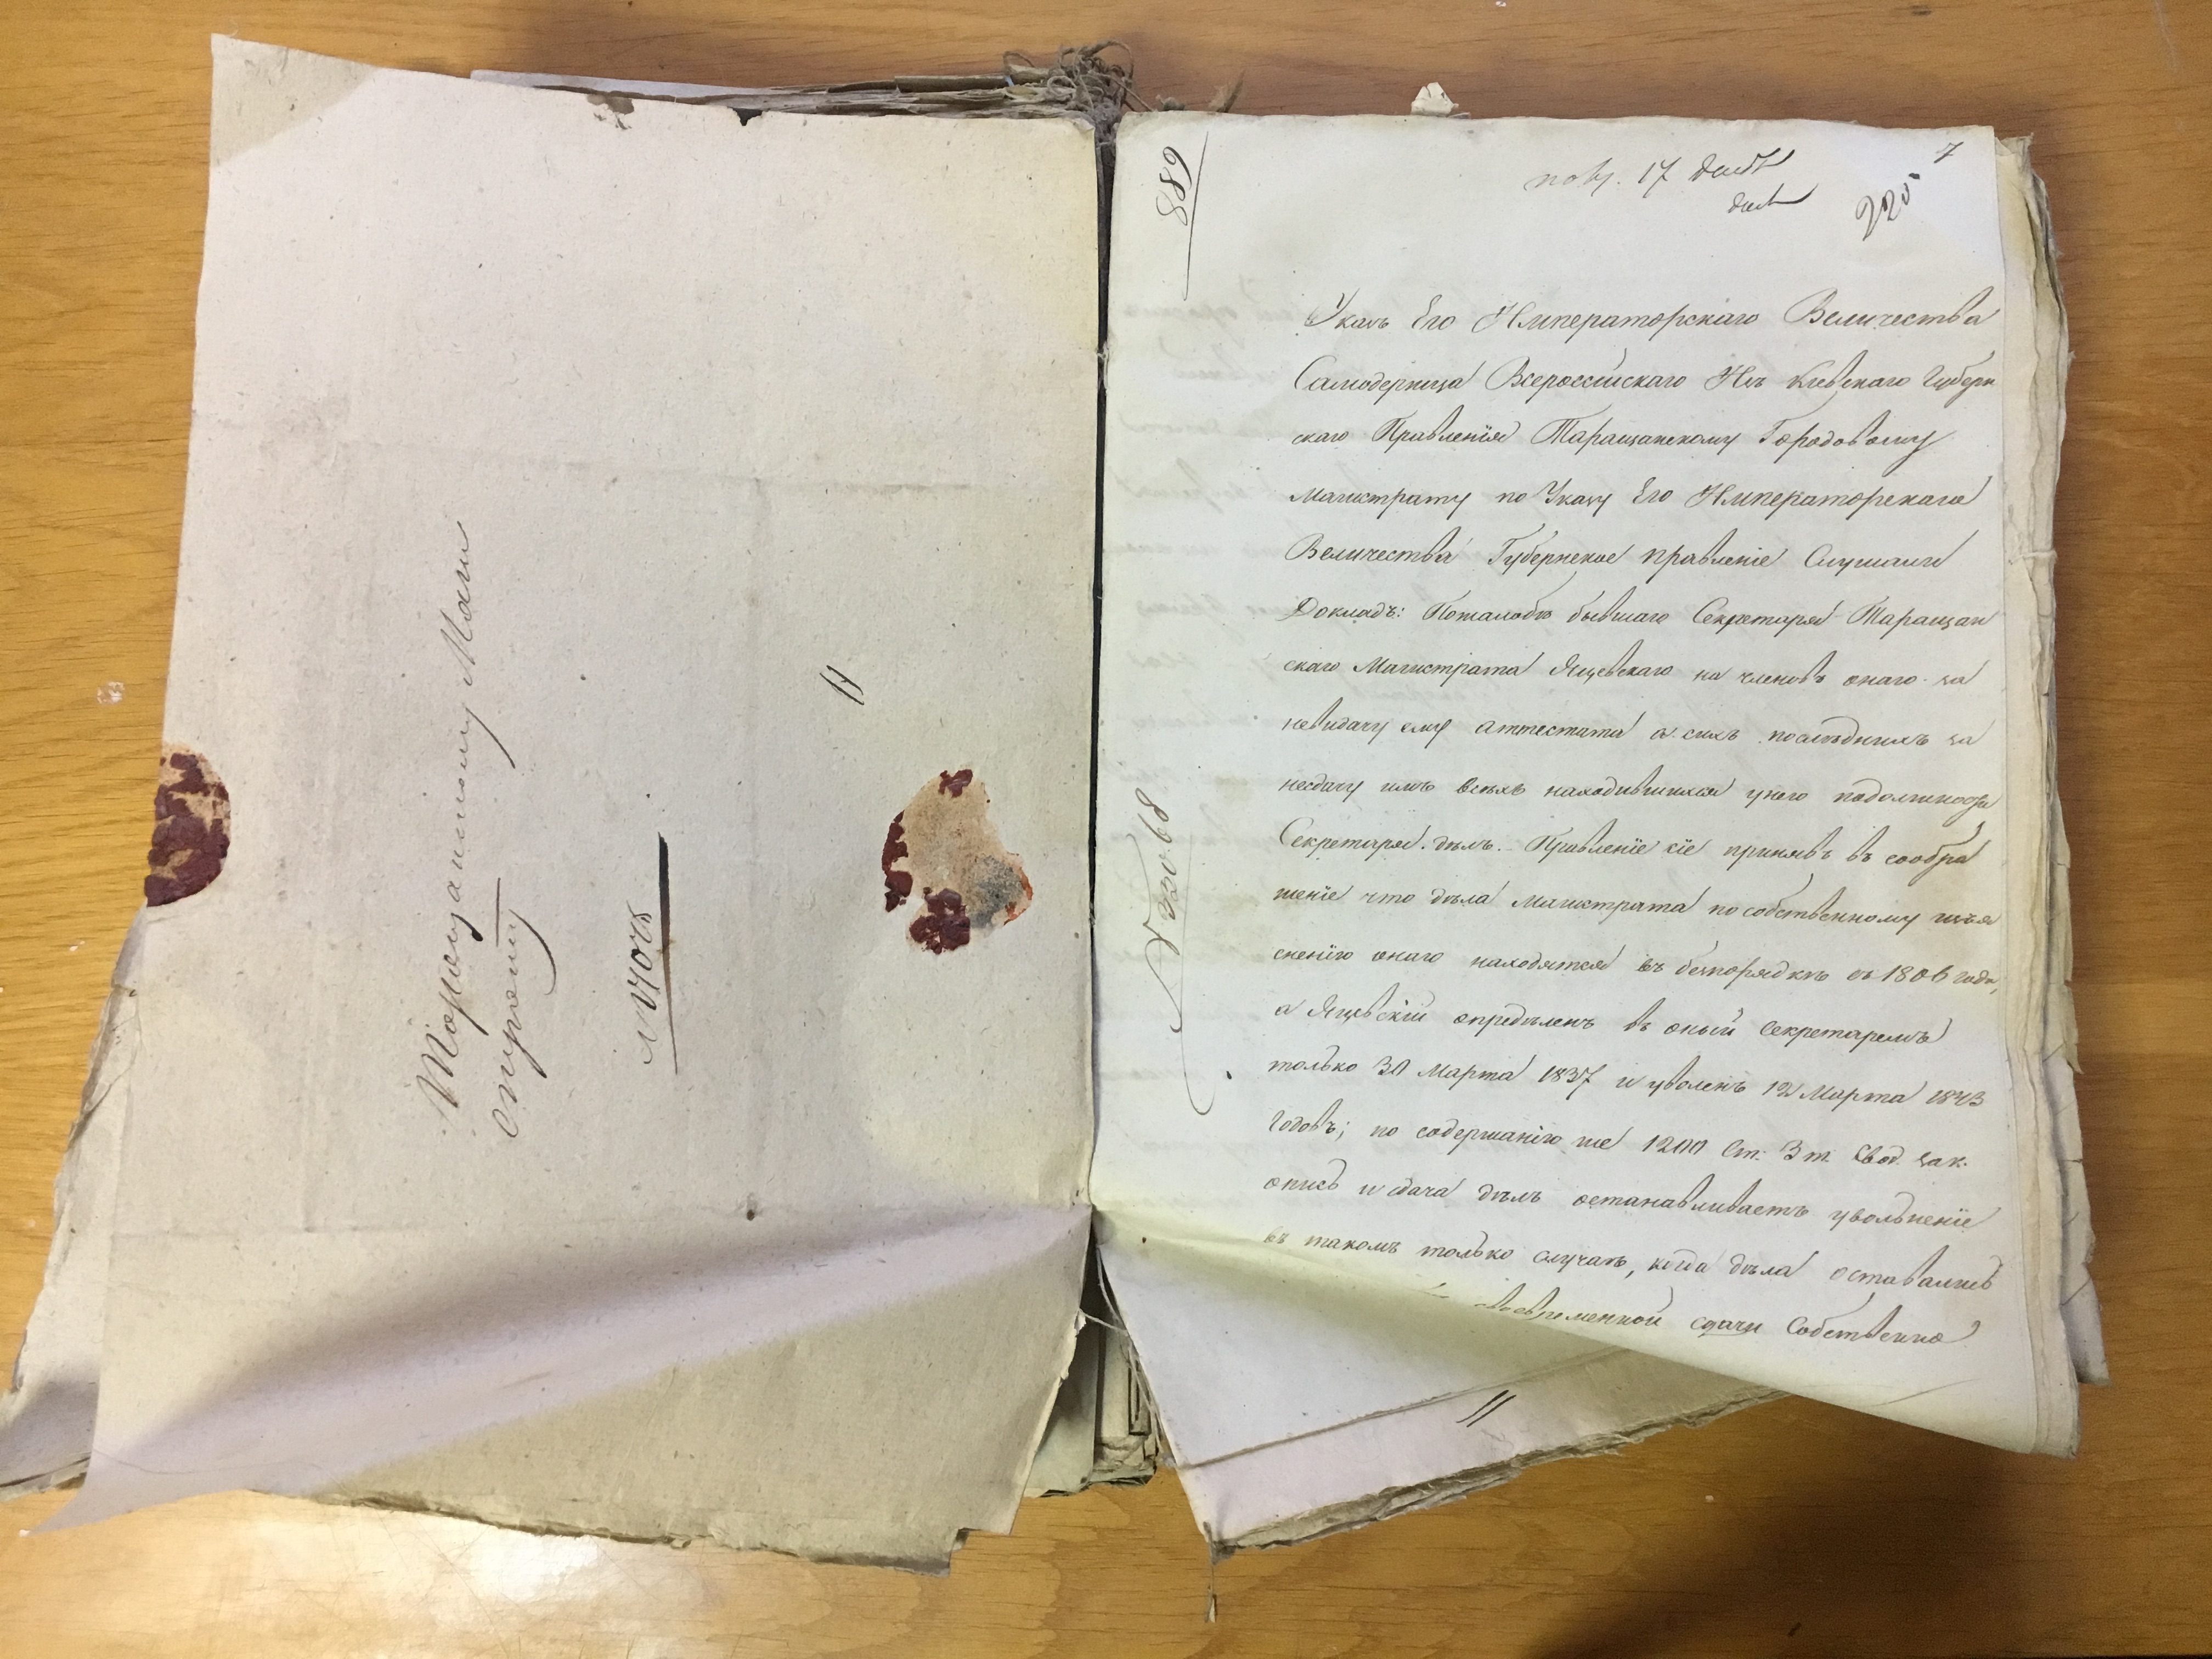 Таращанскому Маги
страту
№ 7078
889
№ 33068
7
220
Указъ Его Императорскаго Величества
Самодержца Всероссійскаго Изъ Кіевскаго Губерн
скаго Правленія Таращанскому Городовому
Магистрату по Указу Его Императорскаго
Величества Губернское правленіе Слушали
Докладъ: Пожалобѣ бывшаго Секретаря Таращан
скаго Магистрата Ящевскаго на членовъ онаго за
невидачу ему аттестата а сихъ послѣднихъ за
несдачу имъ всѣхъ находившихся унего подолжности
Секретаря дѣлъ. Правленіе сіе принявъ въ сообра
женіе что дѣла Магистрата пособственному изъя
сненію онаго находятся въ безпорядкѣ съ 1806 года,
а Ящевскій опредѣленъ въ оный Секретаремъ
только 30 Марта 1837 и уволенъ 12 Марта 1843
Годовъ; по содержанію же 1200 Ст: 3 т. Свод. Зак.
опись и сдача дѣлъ останавливаетъ увольненіе
въ такомъ только случаѣ, когда дѣла оставались
своевременной сдачи Собственно